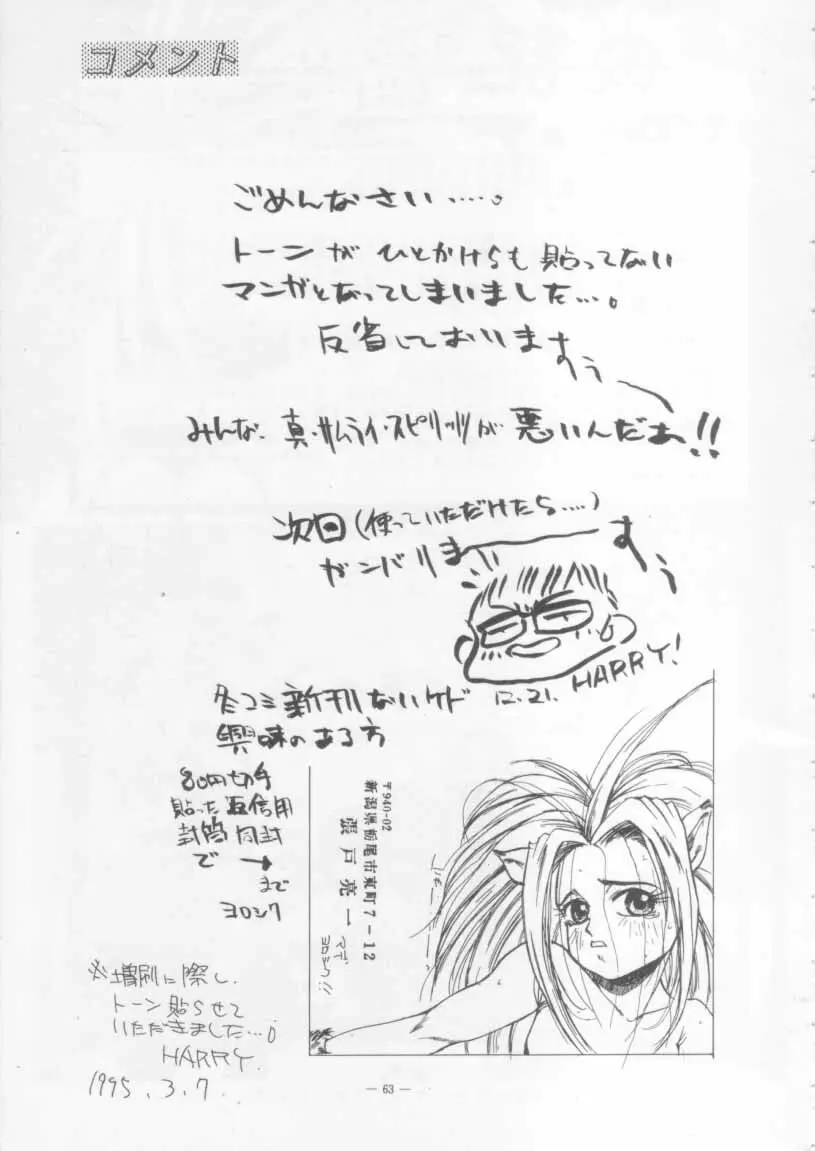 コメント
ごめんなさい……。
トーンが ひとかけらも 貼ってない
マンガとなってしまいました…。
反省しております
みんな、真・サムライ・スピリッツが 悪いんだぁ!!
次回(使っていただけたら……)
ガンバリます
HARRY!
12.21.
冬コミ新刊ないケド
興味のある方
80円切手
貼った返信用
封筒同封
で →
まで
ヨロシク
〒940-02
新潟県栃尾市東町7-12
張戸亮一
マデ
ヨロシク!!
※増刷に際し、
トーン貼らせて
いただきました…。
HARRY.
1995.3.7.
— 63 —